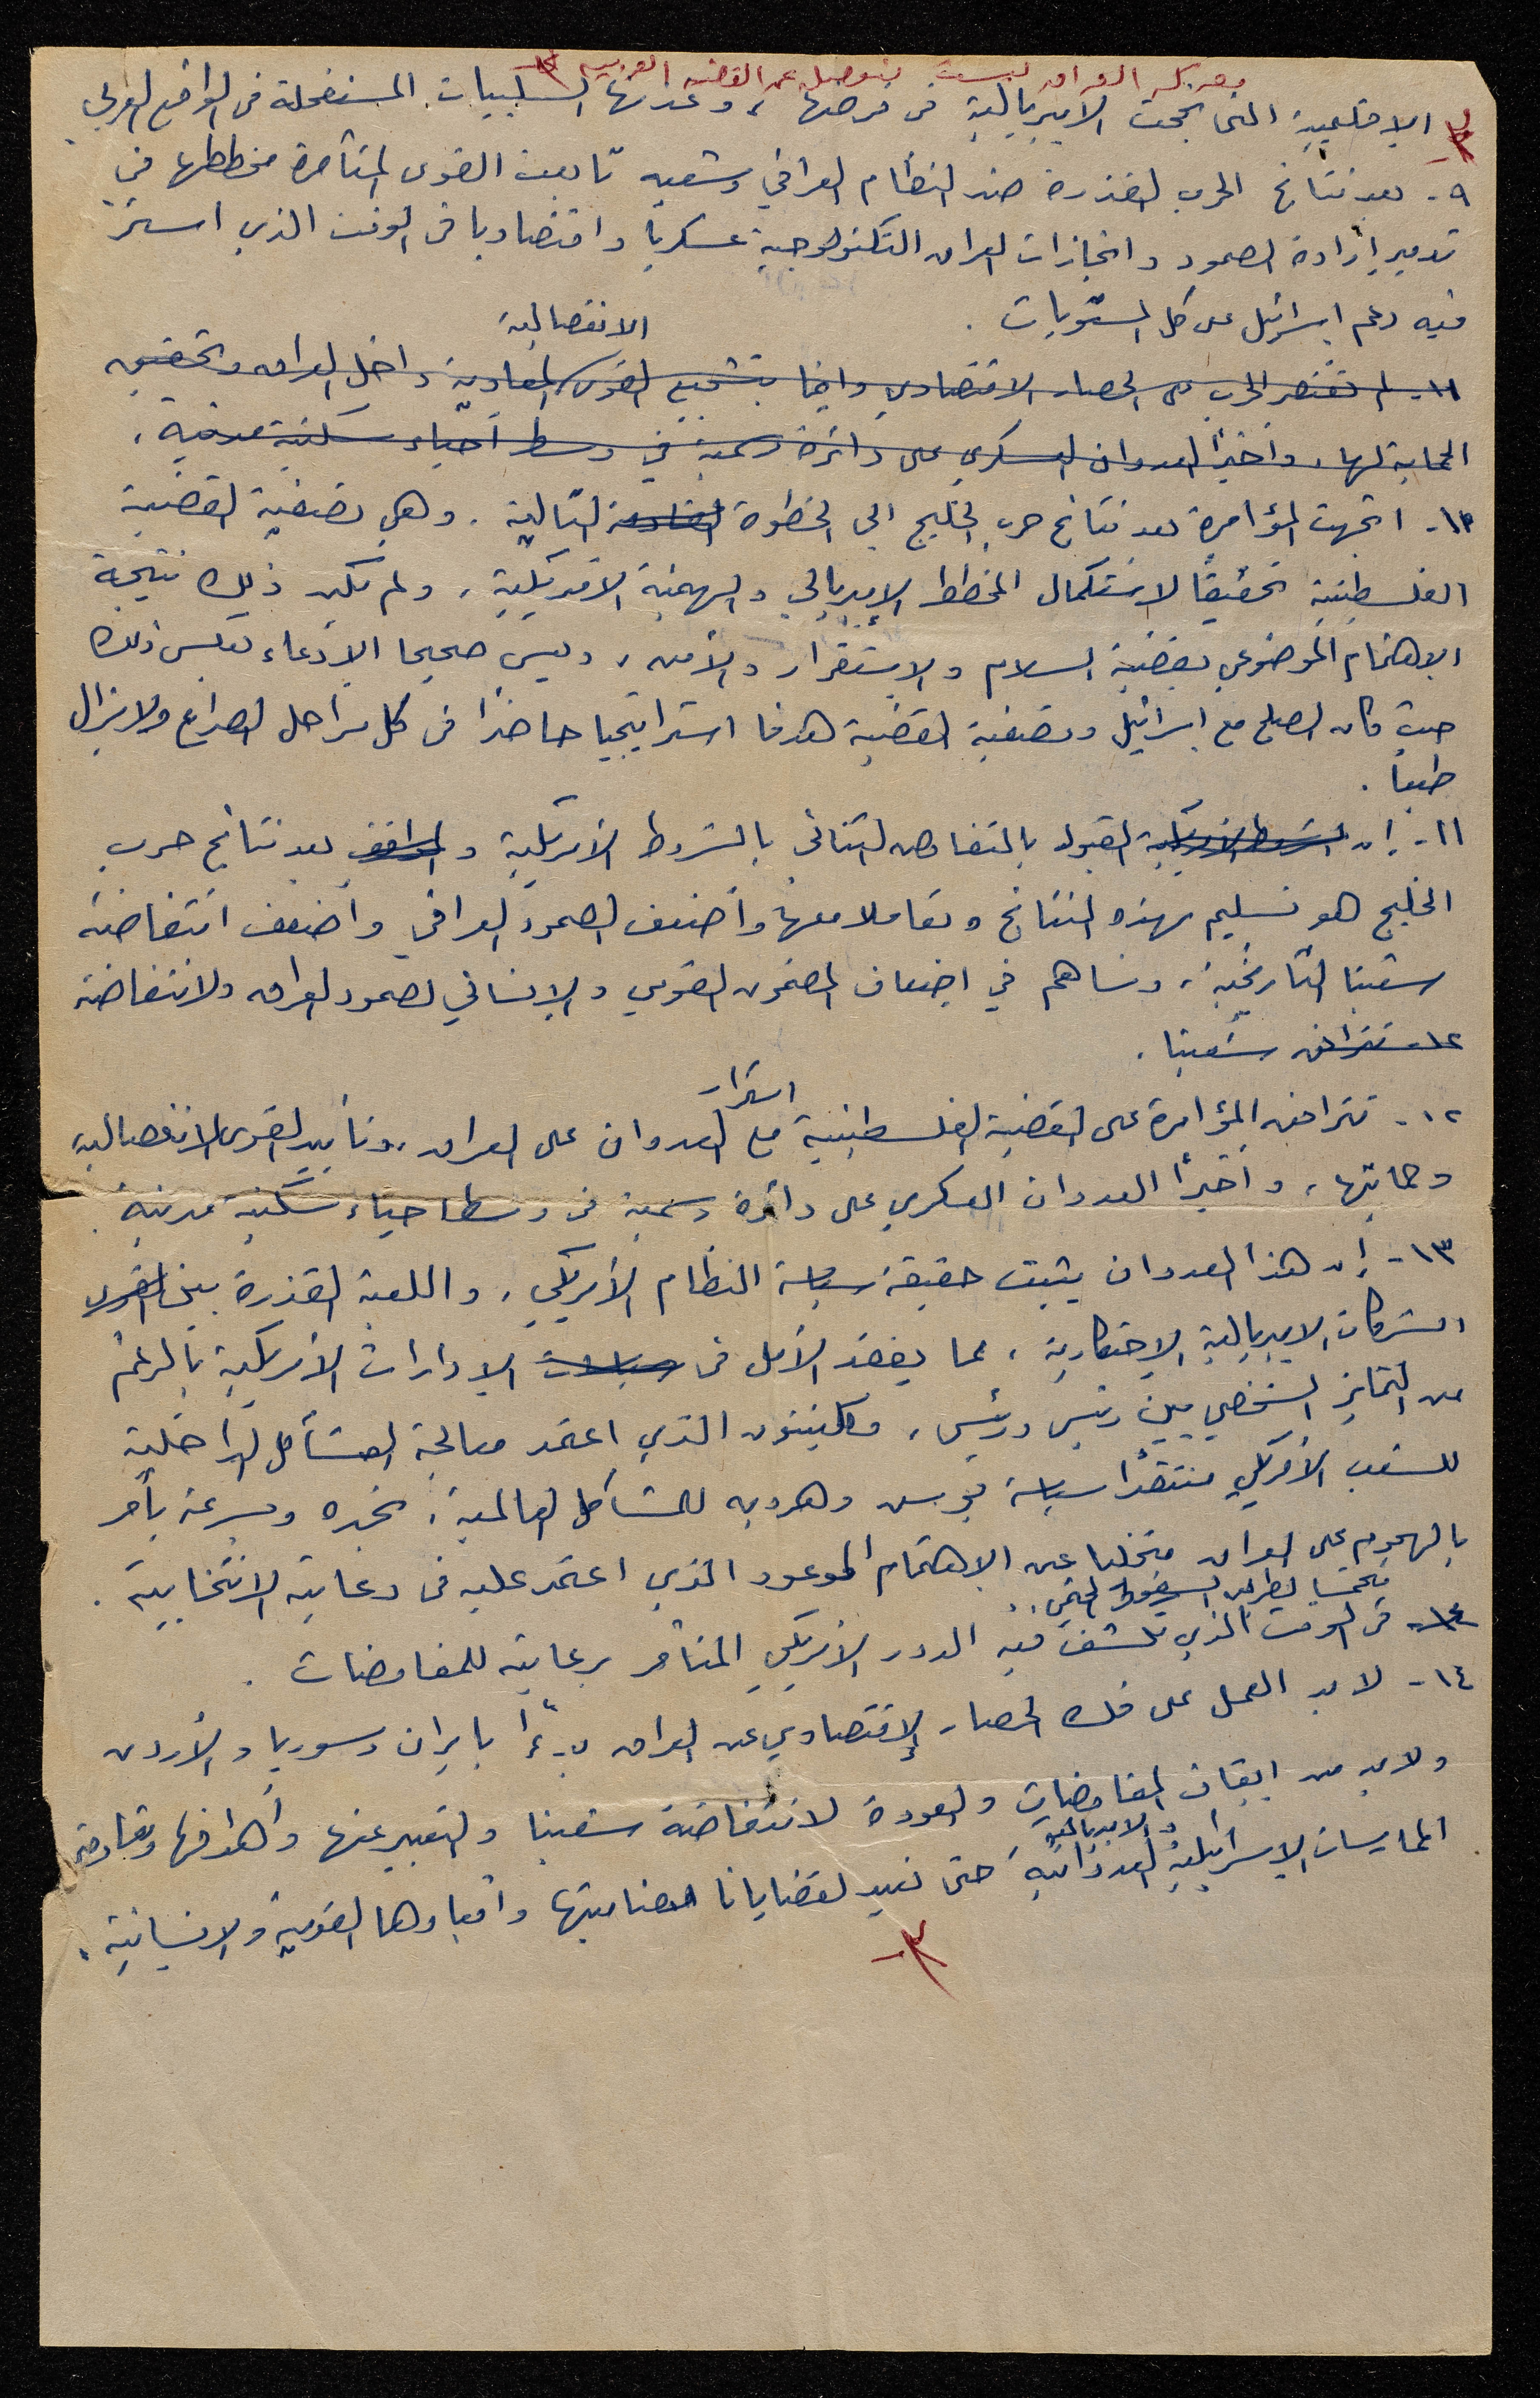 معركة العراق ليست بمعزل عن القضية العربية
الإقليمية التي نجحت الامبريالية في فرضها، وغذتها السلبيات المستفحلة في الواقع العربي
٩- بعد نتائج الحرب القذرة ضد النظام العراقي وشعبه تابعت القوى المتآمرة مخططها في
تدمير إرادة الصمود وانجازات العراق التكنولوجية عسكرياً واقتصاديا في الوقت الذي استمر
فيه دعم اسرائيل على كل المستويات.
الانفصالية
١١- لم تقتصر الحرب على الحصار الاقتصادي وإنما بتشجيع القوى المعادية داخل العراق وتحقيق
الحماية لها، وأخيراً العدوان العسكري على دائرة رسمية في وسط أحياء سكنية مدنية.
١٠- اتجهت المؤامرة بعد نتائج حرب الخليج الى الخطوة التالية. وهي تصفية القضية
الفلسطينية تحقيقاً لاستكمال المخطط الإمبريالي والهيمنة الأمريكية، ولم يكن ذلك نتيجة
الاهتمام الموضوعي بقضية السلام والاستقرار والأمن، وليس صحيحا الادعاء بعكس ذلك
حيث كان الصلح مع اسرائيل وتصفية القضية هدفا استراتيجيا حاضراً في كل مراحل الصراع ولا يزال
طبعاً.
١١- إن الشروط الأمريكية القبول بالتفاوض الثنائي بالشروط الأمريكية والموافقة بعد نتائج حرب
الخليج هو تسليم بهذه النتائج وتعاملا معها وأضعف الصمود العراقي وأضعف انتفاضة
شعبنا التاريخية، وساهم في إضعاف المضمون القومي والإنساني لصمود العراق ولانتفاضة
١٢- تترافق شعبنا.
استمرار
١٢- تترافق المؤامرة على القضية الفلسطينية مع العدوان على العراق، وتأييد القوى الانفصالية
وحمايتها، وأخيراً العدوان العسكري على دائرة رسمية في وسط أحياء سكنية مدنية.
١٣- إن هذا العدوان يثبت حقيقة سياسة النظام الأمريكي، واللعبة القذرة بين القوى
الشركات الامبريالية الاحتكارية، مما يفقد الأمل في سياسات الإدارات الأمريكية بالرغم
من التمايز الشخصي بين رئيس ورئيس، وكلينتون الذي اعتمد معالجة المشاكل الداخلية
للشعب الأمريكي منتقداً سياسة بوش وهروبه للمشاكل العالمية، نجده وبسرعة يأمر
بالهجوم على العراق متخليا عن الاهتمام الموعود الذي اعتمد عليه في دعايته الانتخابية.
١٤- في الوقت الذي تكشف فيه الدور الأمريكي المتآمر برعايته للمفاوضات.
١٤- لا بد العمل على فك الحصار الإقتصادي عن العراق بدءاً بايران وسوريا والأردن
ولا بد من ايقاف المفاوضات والعودة لانتفاضة شعبنا والتعبير عنها وأهدافها ومقاومة
والامبريالية
الممارسات الإسرائيلية العدوانية حتى نعيد لقضايانا مضامينها وأبعادها القومية والإنسانية.